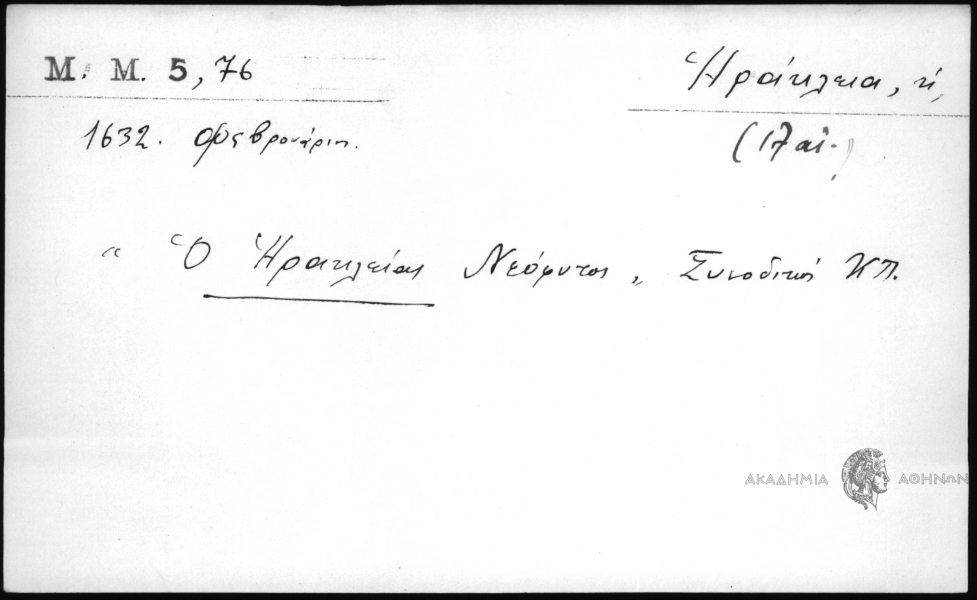 M. M. 5, 76
Ἡράκλεια, ἡ,
1632. Φεβρουάριο.
(17 αἰ.)
" Ὁ Ἡρακλείας Νεόφυτος „ Συνοδικοὶ ΚΠ.
ΑΚΑΔΗΜΙΑ ΑΘΗΝΩΝ